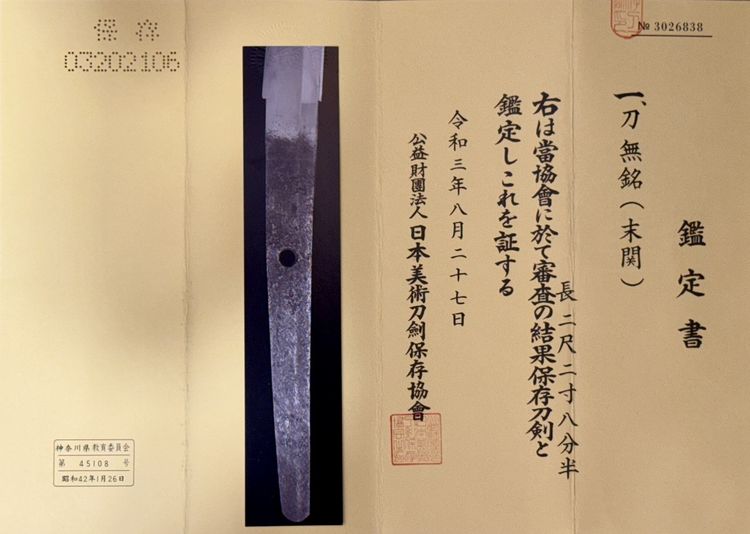 № 3026838
鑑定書
一、刀 無銘(末関)
長 二尺二寸八分半
右は當協會に於て審査の結果保存刀剣と
鑑定しこれを証する
令和三年八月二十七日
公益財團法人 日本美術刀劍保存協會
保存
03202106
神奈川県教育委員会
第 45108 号
昭和42年1月26日